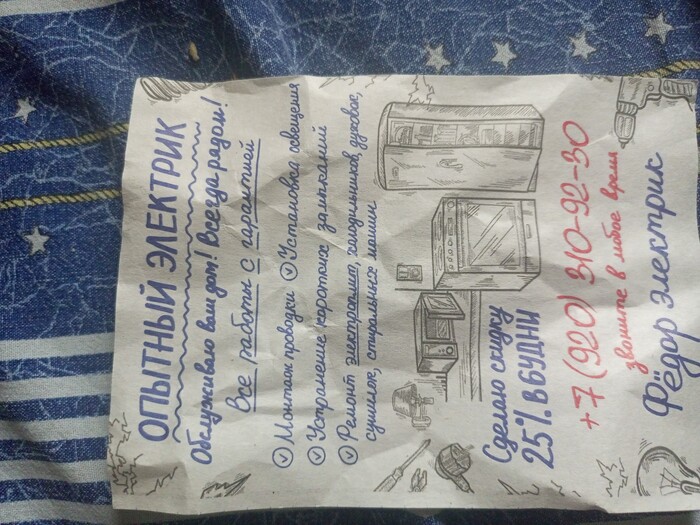 ОПЫТНЫЙ ЭЛЕКТРИК
Обслуживаю ваш дом! Всегда рядом!
Все работы с гарантией
Монтаж проводки Установка освещения
Устранение коротких замыканий
Ремонт электроплит, холодильников, духовок,
сушилок, стиральных машин
Сделаю скидку
25% В БУДНИ
+7 (920) 310-92-30
звоните в любое время
Фёдор электрик